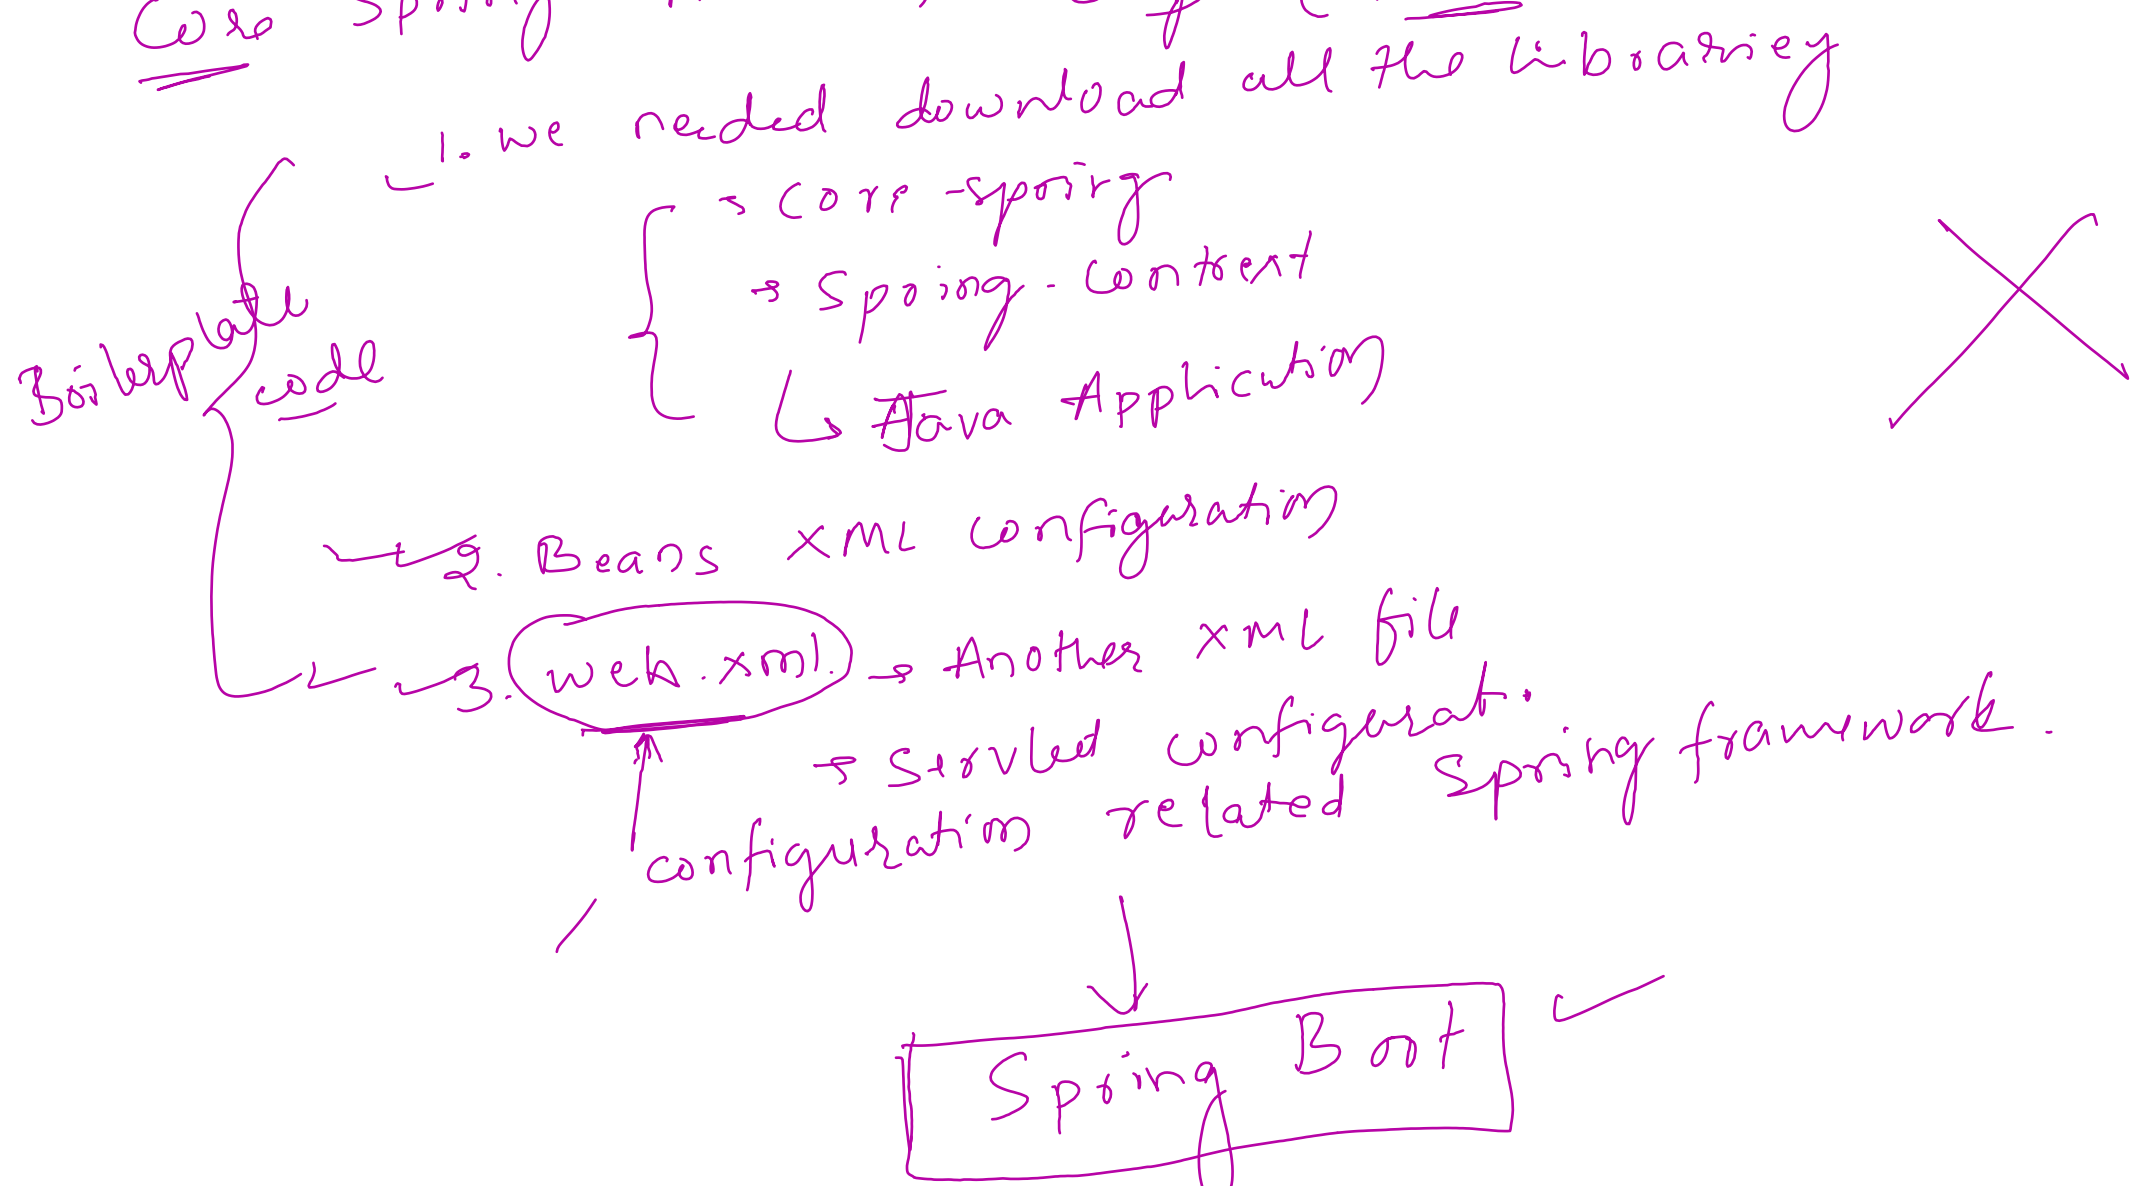 Core Spring
1. we needed download all the librariey
→ core -spring
→ Spring - context
↳ Java Application
Boilerplate
code
2. Beans XML configuration
3. web.xml. → Another XML file
→ Servlet configurat.
configuration related Spring framework.
Spring Boot